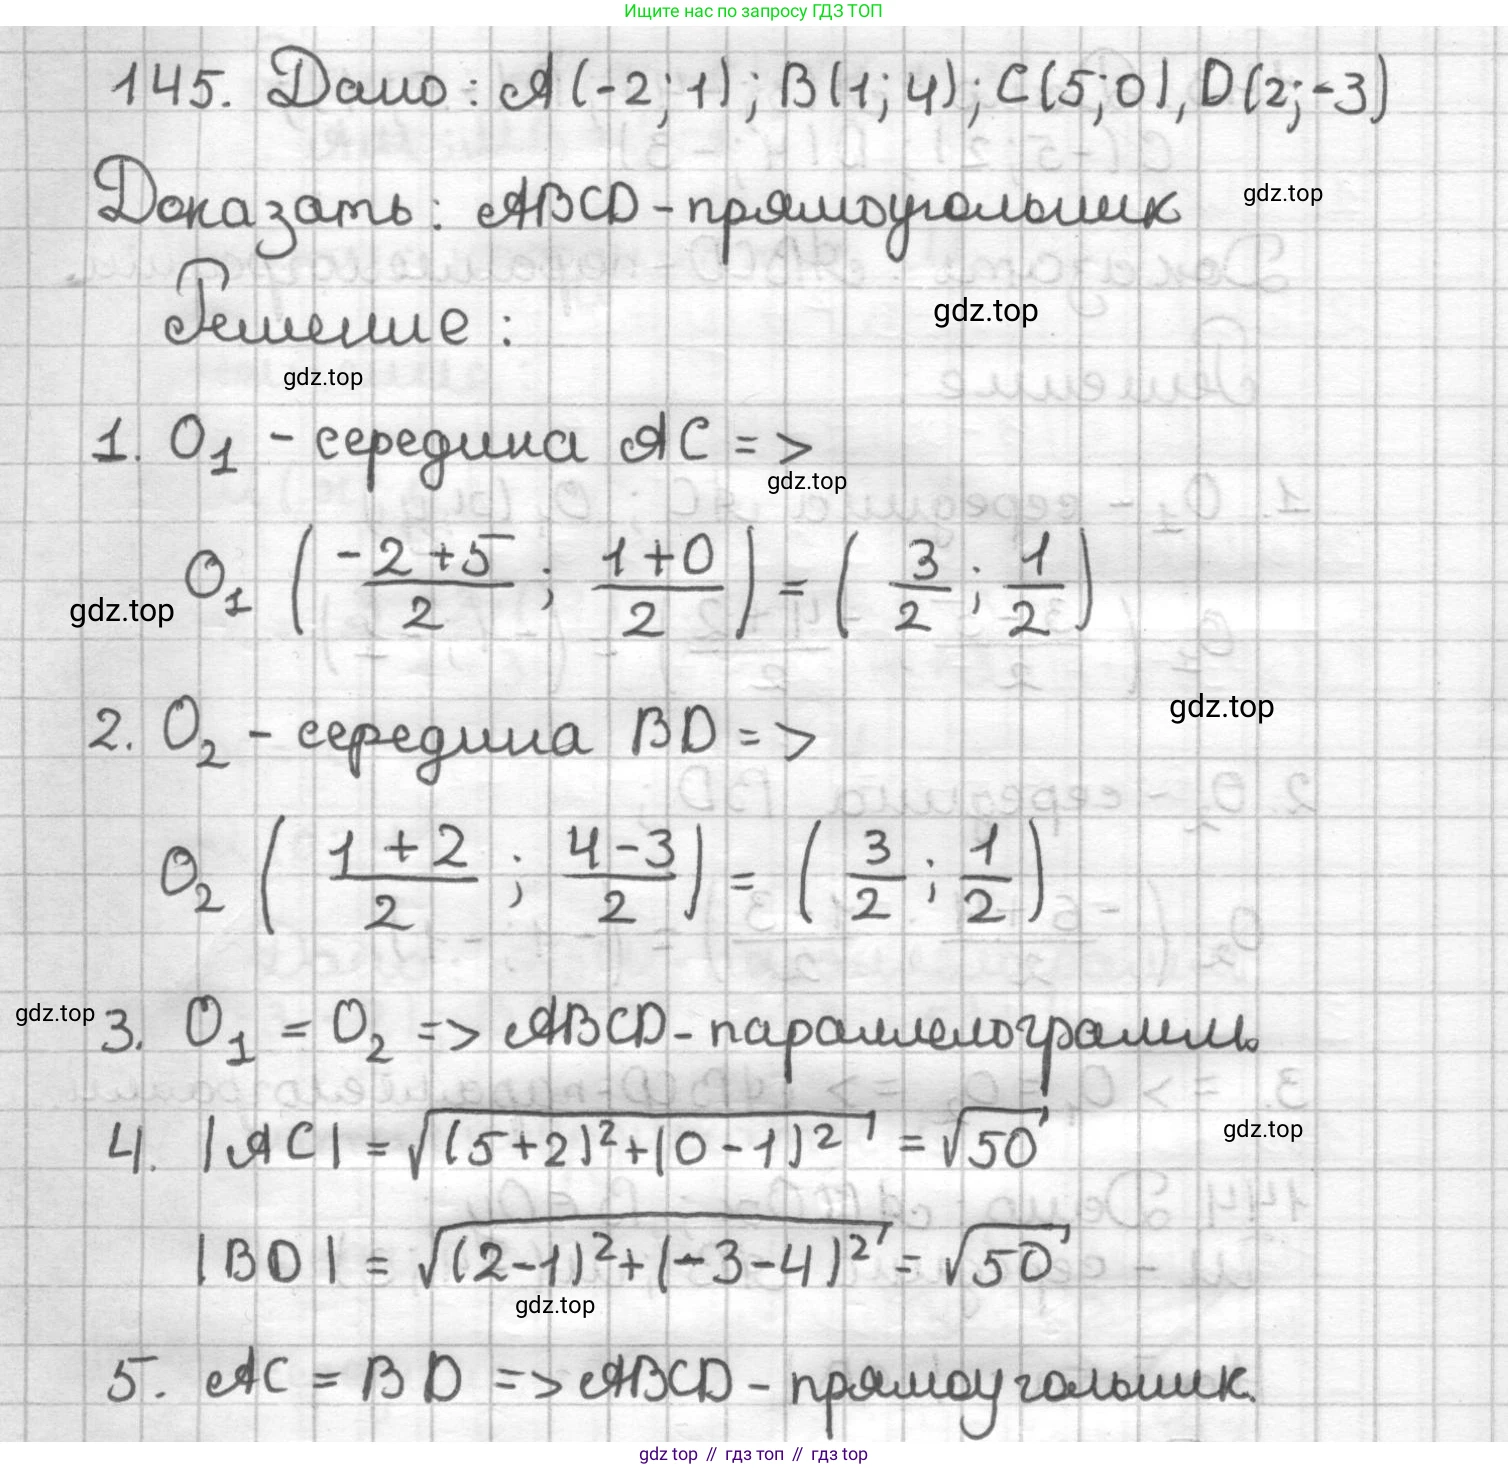 Ищите нас по запросу ГДЗ ТОП
145. Дано: A(-2; 1); B(1; 4); C(5; 0), D(2; -3)
Доказать: ABCD - прямоугольник
gdz.top
Решение:
gdz.top
gdz.top
1. O₁ - середина AC =>
gdz.top
O₁ ( (-2+5)/2 ; (1+0)/2 ) = ( 3/2 ; 1/2 )
gdz.top
2. O₂ - середина BD =>
gdz.top
O₂ ( (1+2)/2 ; (4-3)/2 ) = ( 3/2 ; 1/2 )
gdz.top
3. O₁ = O₂ => ABCD - параллелограмм.
4. |AC| = √((5+2)²+(0-1)²) = √50
gdz.top
|BD| = √((2-1)²+(-3-4)²) = √50
gdz.top
5. AC = BD => ABCD - прямоугольник.
gdz top // гдз топ // gdz top